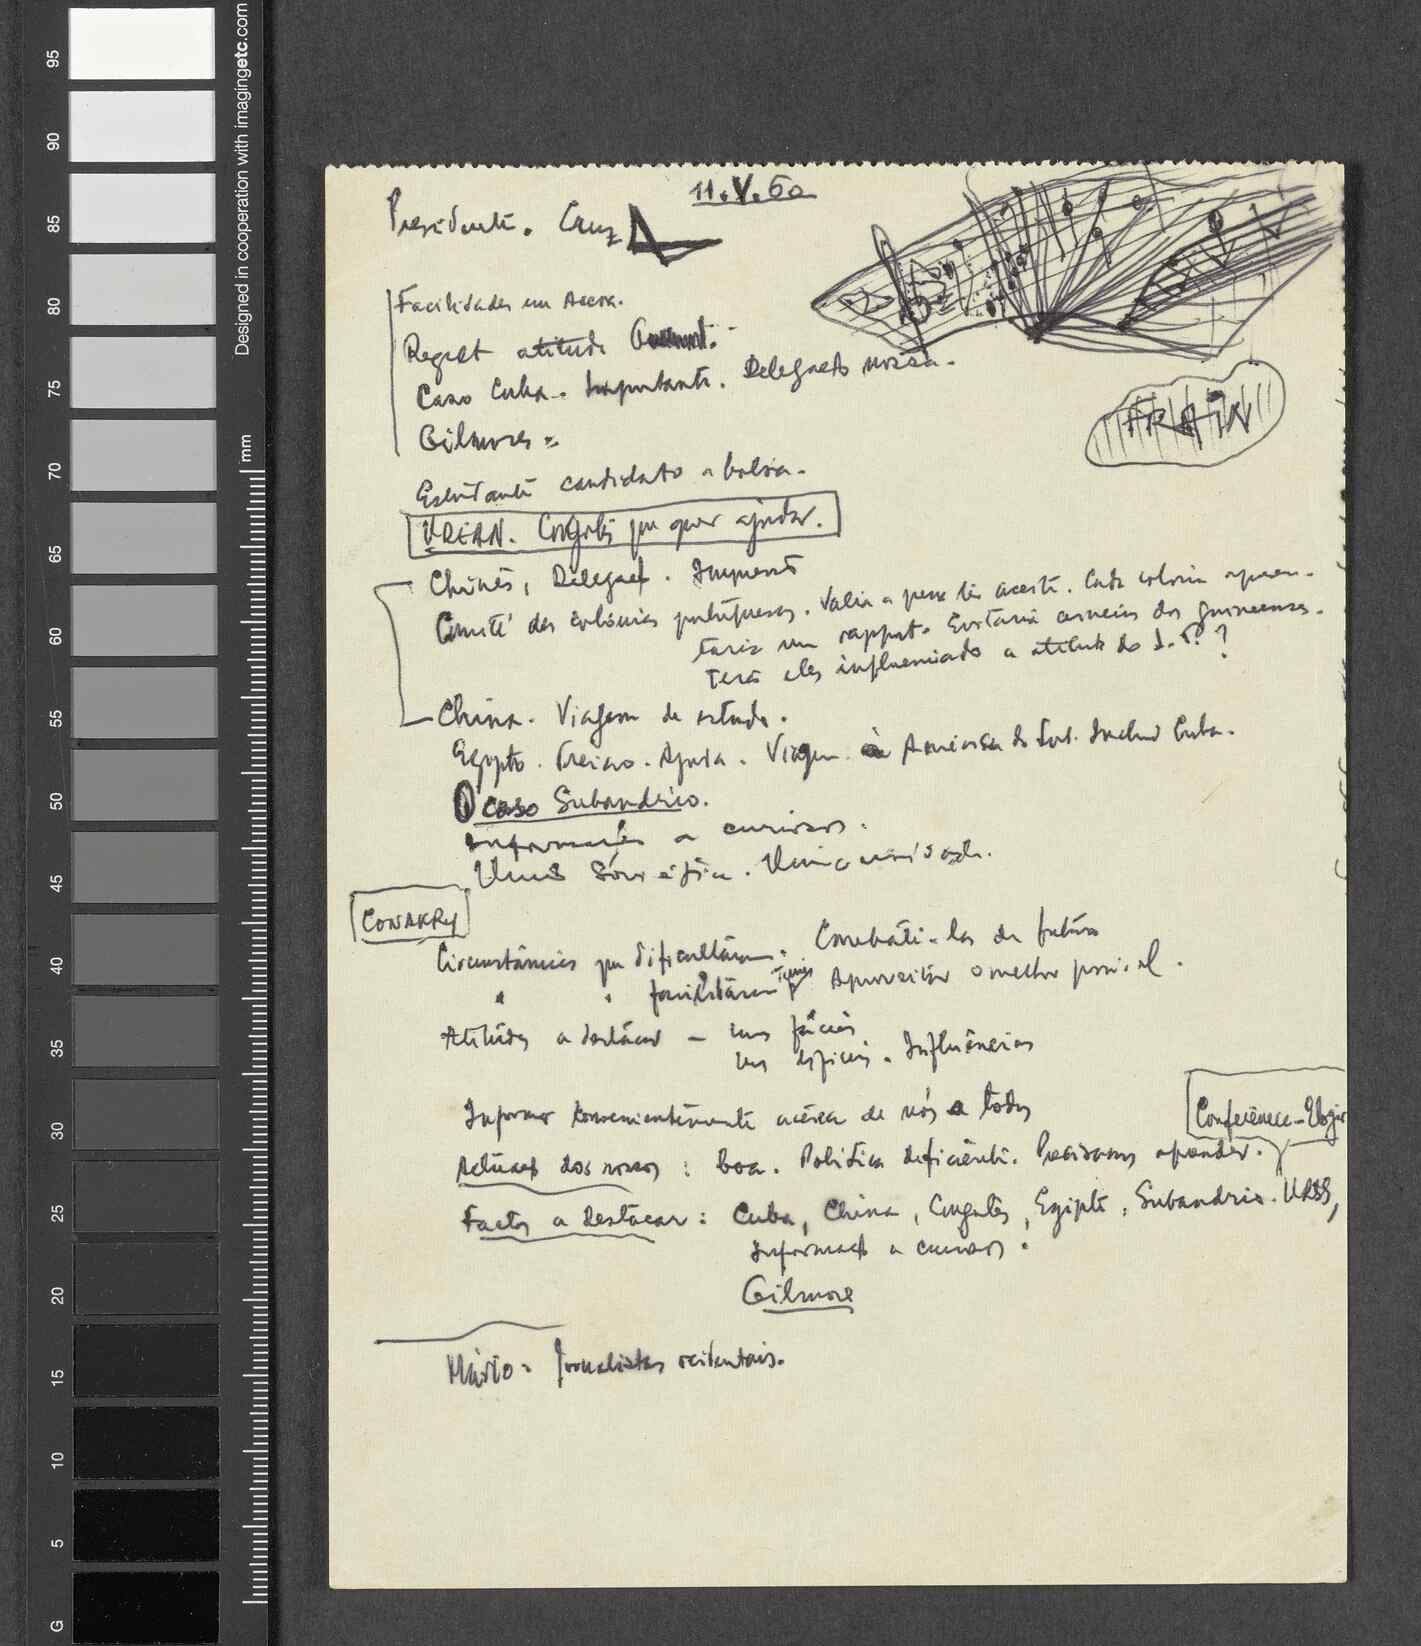 11.V.60
Presidente. Cruz
Facilidades em Accra.
Regist atitude
Caso Cuba. Importante. Delegação nossa.
Gilmore.
Estudante candidato a bolsa.
Congolês que quer ajudar.
Chinês, Delegação.
Comité das colónias portuguesas. Valia a pena ter aceite. Cada colónia apresen-
taria um rapport. Evitaria os guineenses.
Terá eles influenciado a atitude do
China. Viagem de estudo.
Egypto. Ajuda. Viagem à América do Sul. Cuba.
O caso Subandrio.
Informações a curiosos.
União Soviética.
CONAKRY
Circunstâncias que dificultaram. Combatê-las de futuro
" " facilitaram Aproveitar o melhor possível.
Atitudes a destacar - uns fáceis
uns difíceis. Influências
Informar convenientemente acerca de nós a todos
Conférence-
Actuação dos nossos: boa. Política deficiente. Precisamos aprender.
Factos a destacar: Cuba, China, Congolês, Egipto, Subandrio. URSS,
Informação a curiosos.
Gilmore
Mário. Jornalistas ocidentais.
Designed in cooperation with imagingetc.com
mm
95
90
85
80
75
70
65
60
55
50
45
40
35
30
25
20
15
10
5
G